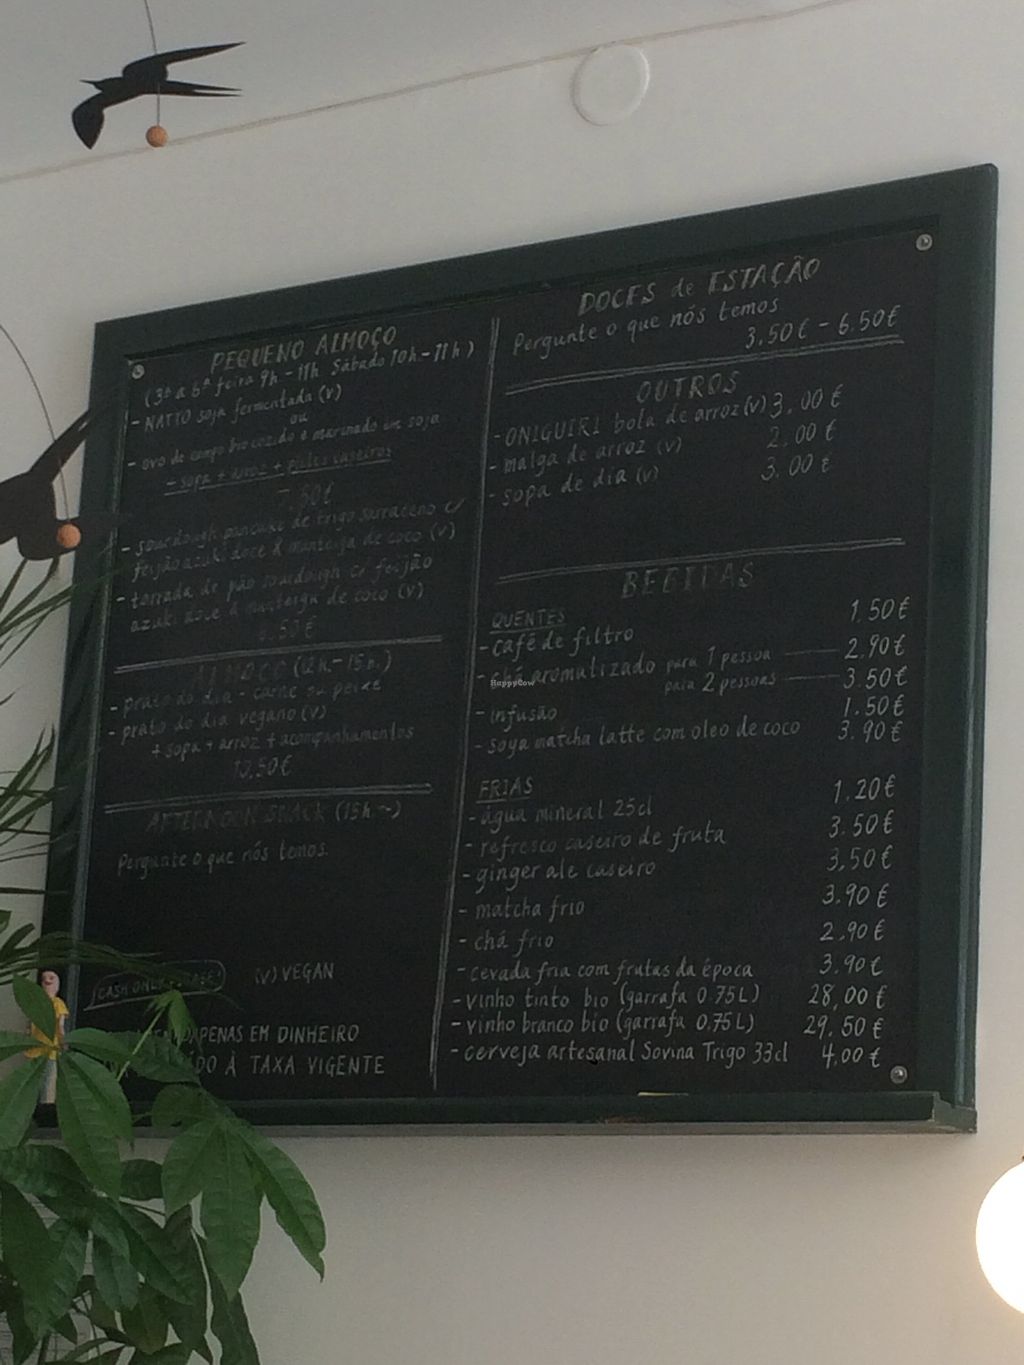 PEQUENO ALMOÇO
(3ª a 6ª feira 9h - 11h Sábado 10h - 11h)
- NATTO soja fermentada (v)
ou
- ovo de campo bio cozido e marinado em soja
+ sopa + arroz + pickles caseiros
7,50€
- sourdough pancake de trigo sarraceno c/
feijão azuki doce & manteiga de coco (v)
- torrada de pão sourdough c/ feijão
azuki doce & manteiga de coco (v)
.50€
ALMOÇO (12h. - 15h.)
- prato do dia - carne ou peixe
- prato do dia vegano (v)
+ sopa + arroz + acompanhamentos
10.50€
AFTERNOON SNACK (15h. ~)
Pergunte o que nós temos.
CASH ONLY PLEASE
(v) VEGAN
APENAS EM DINHEIRO
DO À TAXA VIGENTE
DOCES de ESTAÇÃO
Pergunte o que nós temos
3.50€ - 6.50€
OUTROS
- ONIGUIRI bola de arroz (v) 3.00€
- malga de arroz (v) 2.00€
- sopa de dia (v) 3.00€
BEBIDAS
QUENTES
- café de filtro 1.50€
- chá aromatizado para 1 pessoa 2.90€
para 2 pessoas 3.50€
- infusão 1.50€
- soya matcha latte com oleo de coco 3.90€
FRIAS
- água mineral 25cl 1.20€
- refresco caseiro de fruta 3.50€
- ginger ale caseiro 3,50€
- matcha frio 3.90€
- chá frio 2.90€
- cevada fria com frutas da época 3.90€
- vinho tinto bio (garrafa 0.75L) 28,00€
- vinho branco bio (garrafa 0.75L) 29.50€
- cerveja artesanal Sovina Trigo 33cl 4.00€
HappyCow